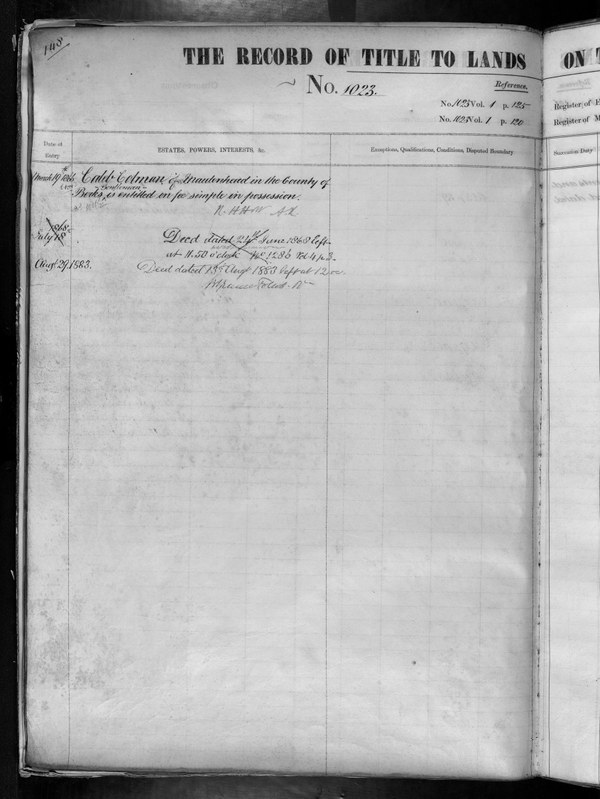 148
THE RECORD OF TITLE TO LANDS
ON
No. 1023.
Reference.
No. 1023 Vol. 1 p. 125
No. 1023 Vol. 1 p. 120
Register of
Register of
Date of
Entry
ESTATES, POWERS, INTERESTS, &c.
Exceptions, Qualifications, Conditions, Disputed Boundary.
Succession Duty
March 19th 1866
Caleb Colman, of Maidenhead in the County of
Gentleman
Berks, is entitled in fee simple in possession.
1868
July 18
Deed dated 24th June 1868 left
at 11.50 o'clock No 1236 Vol 4 p 3
Augt 29. 1883.
Deed dated 13th Augt 1883 left at 12 oc.